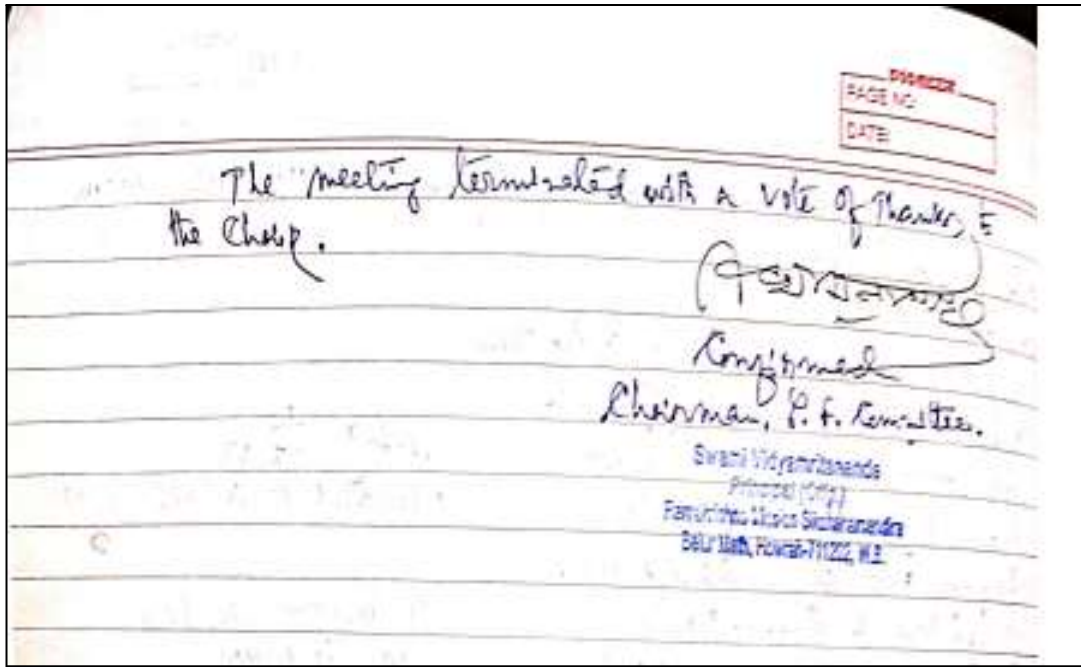 PIONEER
PAGE NO.
DATE:
The meeting terminated with a vote of Thanks, to
the Chair.
Confirmed
Chairman, P. F. Committee.
Swami Vidyamritananda
Principal (Offg.)
Ramakrishna Mission Sikshanamandira
Belur Math, Howrah-711202, W.B.